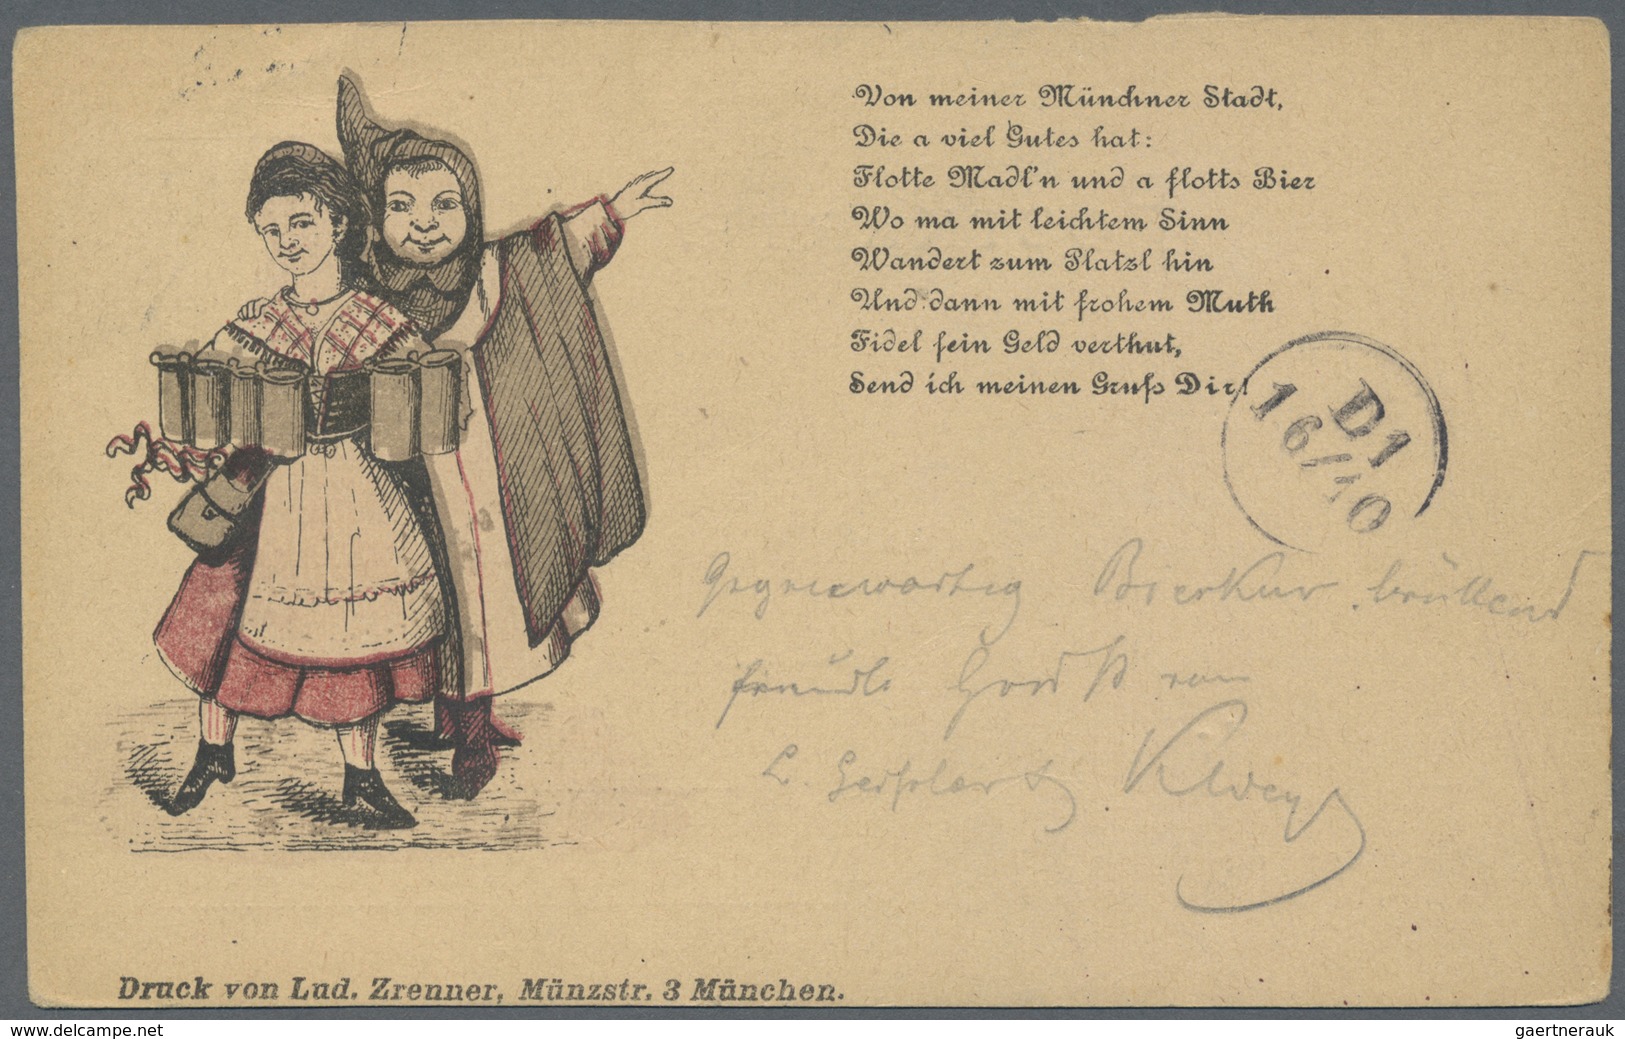 Von meiner Münchner Stadt,
Die a viel Gutes hat:
Flotte Madl'n und a flotts Bier
Wo ma mit leichtem Sinn
Wandert zum Platzl hin
Und dann mit frohem Muth
Fidel sein Geld verthut,
Send ich meinen Gruß Dir!
D1
16/10
Druck von Lud. Zrenner, Münzstr. 3 München.
www.delcampe.net
gaertnerauk